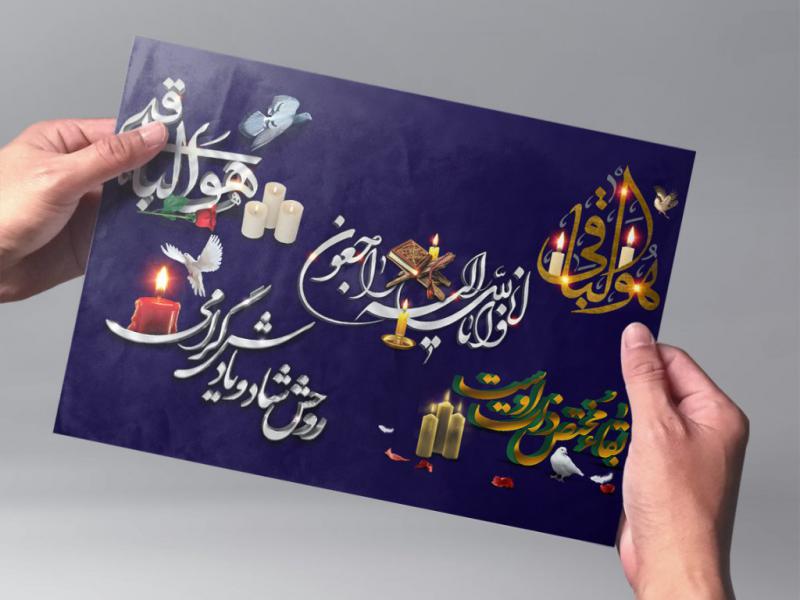 هو الباقی
هو الباقی
انا لله و انا الیه راجعون
روحش شاد و یادش گرامی
بقاء مختص ذات اوست